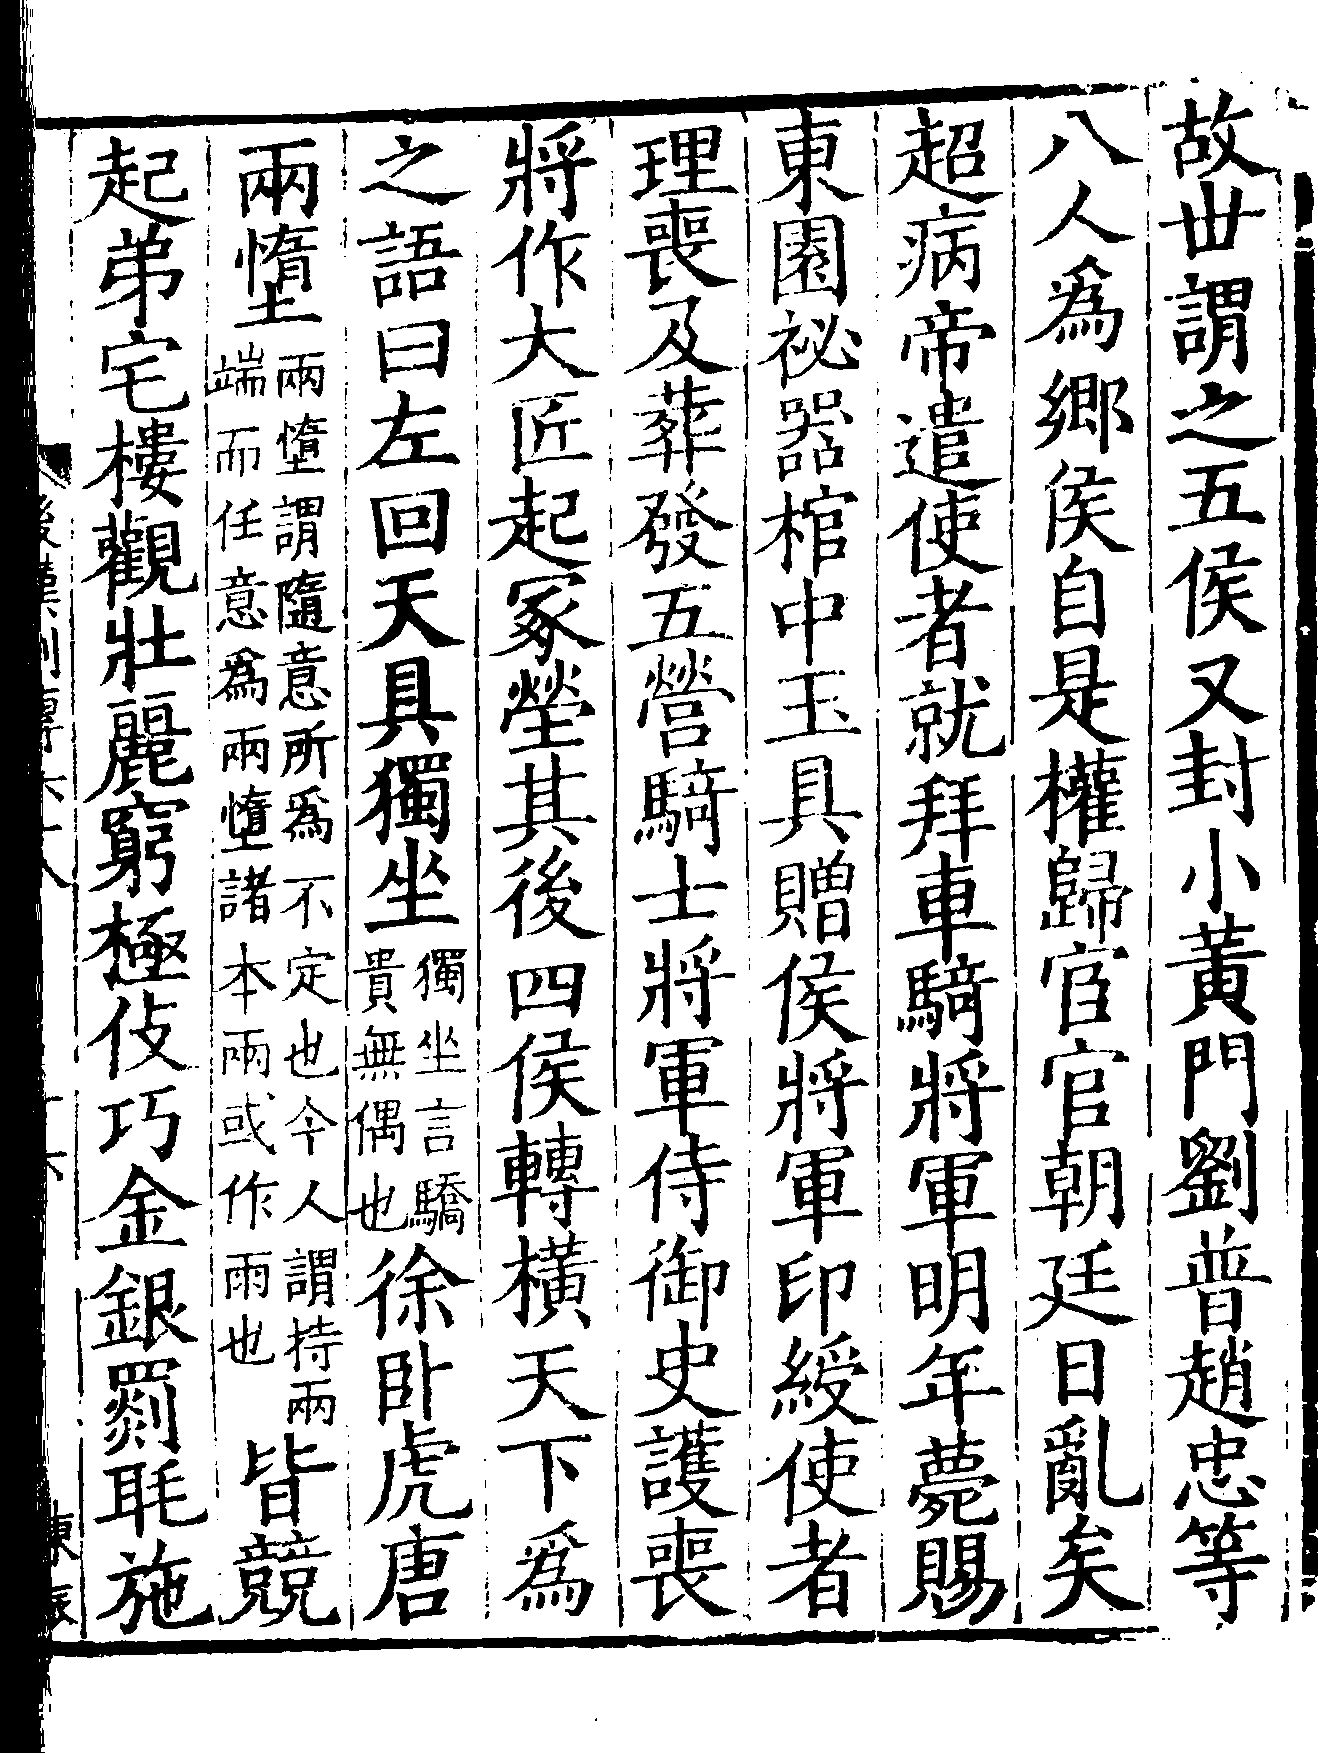 故世謂之五侯又封小黃門劉普趙忠等
八人爲鄉侯自是權歸宦官朝廷日亂矣
超病帝遣使者就拜車騎將軍明年薨賜
東園祕器棺中玉具贈侯將軍印綬使者
理喪及葬發五營騎士將軍侍御史護喪
將作大匠起冢塋其後四侯轉橫天下爲
之語曰左回天具獨坐獨坐言驕貴無偶也徐臥虎唐
兩墮兩墮謂隨意所爲不定也今人謂持兩端而任意爲兩墮諸本兩或作雨也皆競
起弟宅樓觀壯麗窮極伎巧金銀罽毦施
後漢列傳六十八